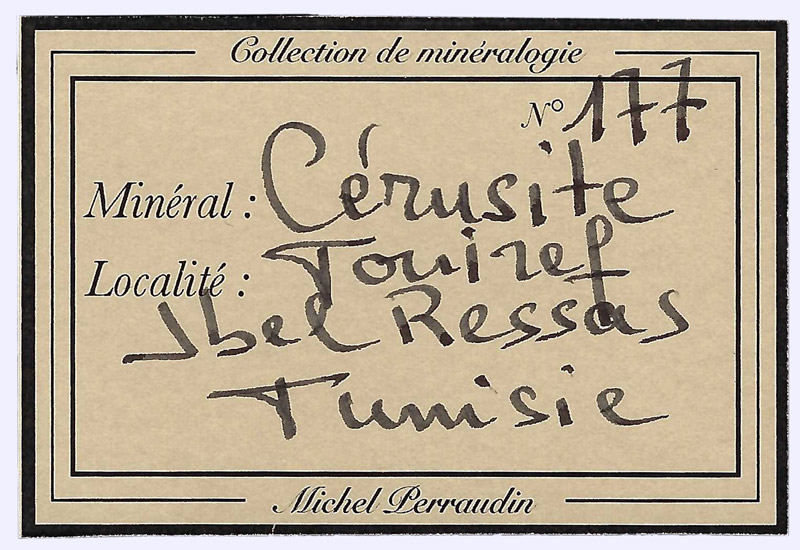 Collection de minéralogie
N° 177
Minéral : Cérusite
Localité : Touiref
Jbel Ressas
Tunisie
Michel Perraudin